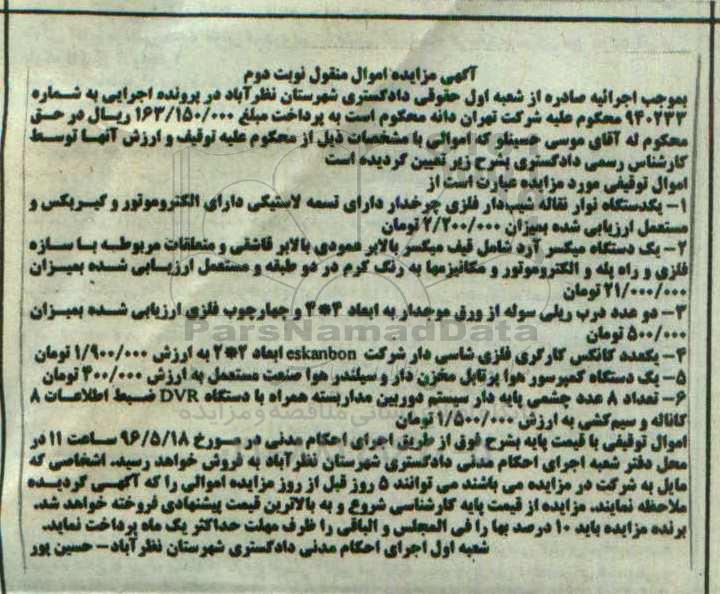 آگهی مزایده اموال منقول نوبت دوم
بموجب اجرائیه صادره از شعبه اول حقوقی دادگستری شهرستان نظرآباد در پرونده اجرایی به شماره
۹۴۰۲۳۳ محکوم علیه شرکت تهران دانه محکوم است به پرداخت مبلغ ۱۶۳/۱۵۰/۰۰۰ ریال در حق
محکوم له آقای موسی حسینلو که اموالی با مشخصات ذیل از محکوم علیه توقیف و ارزش آنها توسط
کارشناس رسمی دادگستری بشرح زیر تعیین گردیده است
اموال توقیفی مورد مزایده عبارت است از
۱- یکدستگاه نوار نقاله شیب‌دار فلزی چرخدار دارای تسمه لاستیکی دارای الکتروموتور و گیربکس و
مستعمل ارزیابی شده بمیزان ۲/۲۰۰/۰۰۰ تومان
۲- یک دستگاه میکسر آرد شامل قیف میکسر بالابر عمودی بالابر قاشقی و متعلقات مربوطه با سازه
فلزی و راه پله و الکتروموتور و مکانیزمها به رنگ کرم در دو طبقه و مستعمل ارزیابی شده بمیزان
۲۱/۰۰۰/۰۰۰ تومان
۳- دو عدد درب ریلی سوله از ورق موجدار به ابعاد ۴*۴ و چهارچوب فلزی ارزیابی شده بمیزان
۵۰۰/۰۰۰ تومان
ParsNamadData
۴- یکعدد کانکس کارگری فلزی شاسی دار شرکت eskanbon ابعاد ۲*۲ به ارزش ۱/۹۰۰/۰۰۰ تومان
۵- یک دستگاه کمپرسور هوا پرتابل مخزن دار و سیلندر هوا صنعت مستعمل به ارزش ۴۰۰/۰۰۰ تومان
۶- تعداد ۸ عدد چشمی پایه دار سیستم دوربین مداربسته همراه با دستگاه DVR ضبط اطلاعات ۸
کاناله و سیم‌کشی به ارزش ۱/۵۰۰/۰۰۰ تومان
اموال توقیفی با قیمت پایه بشرح فوق از طریق اجرای احکام مدنی در مورخ ۹۶/۵/۱۸ ساعت ۱۱ در
محل دفتر شعبه اجرای احکام مدنی دادگستری شهرستان نظرآباد به فروش خواهد رسید. اشخاصی که
مایل به شرکت در مزایده می باشند می توانند ۵ روز قبل از روز مزایده اموالی را که آگهی گردیده
ملاحظه نمایند. مزایده از قیمت پایه کارشناسی شروع و به بالاترین قیمت پیشنهادی فروخته خواهد شد.
برنده مزایده باید ۱۰ درصد بها را فی المجلس و الباقی را ظرف مهلت حداکثر یک ماه پرداخت نماید.
شعبه اول اجرای احکام مدنی دادگستری شهرستان نظرآباد- حسین پور